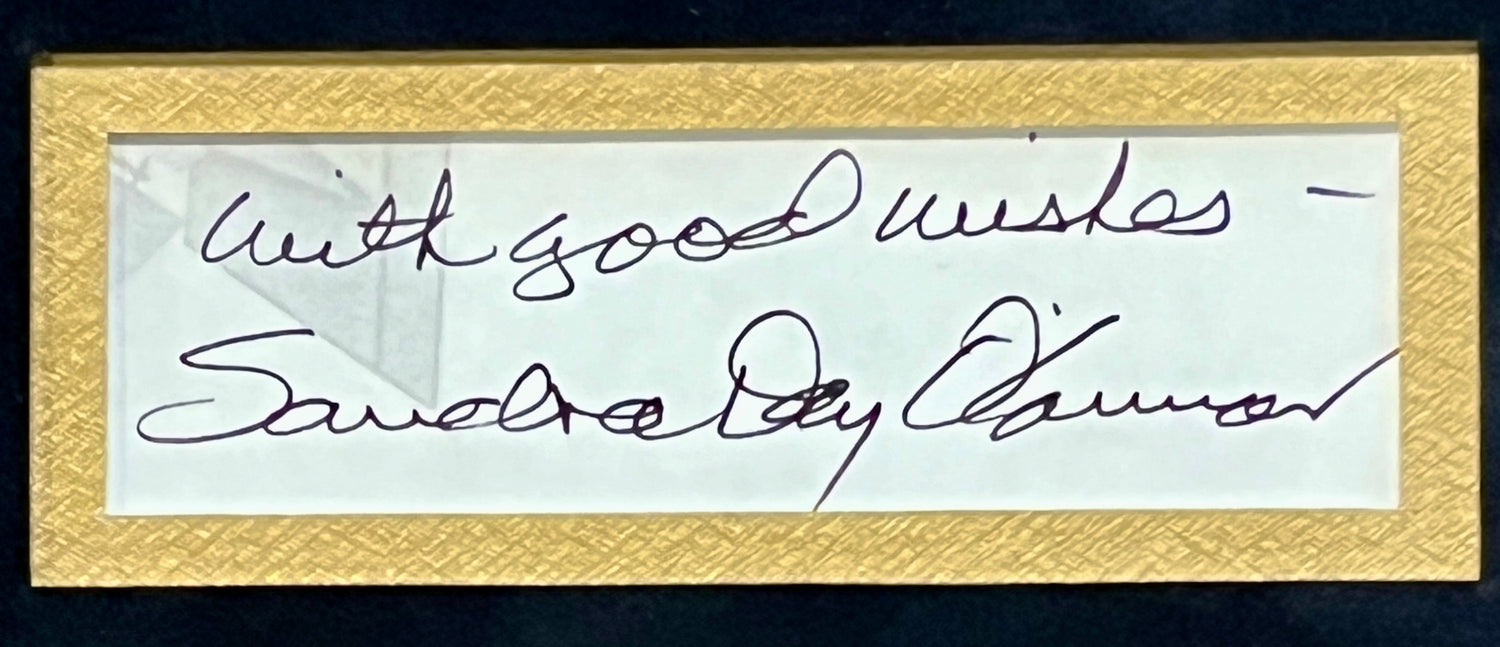 with good wishes –
Sandra Day O'Connor